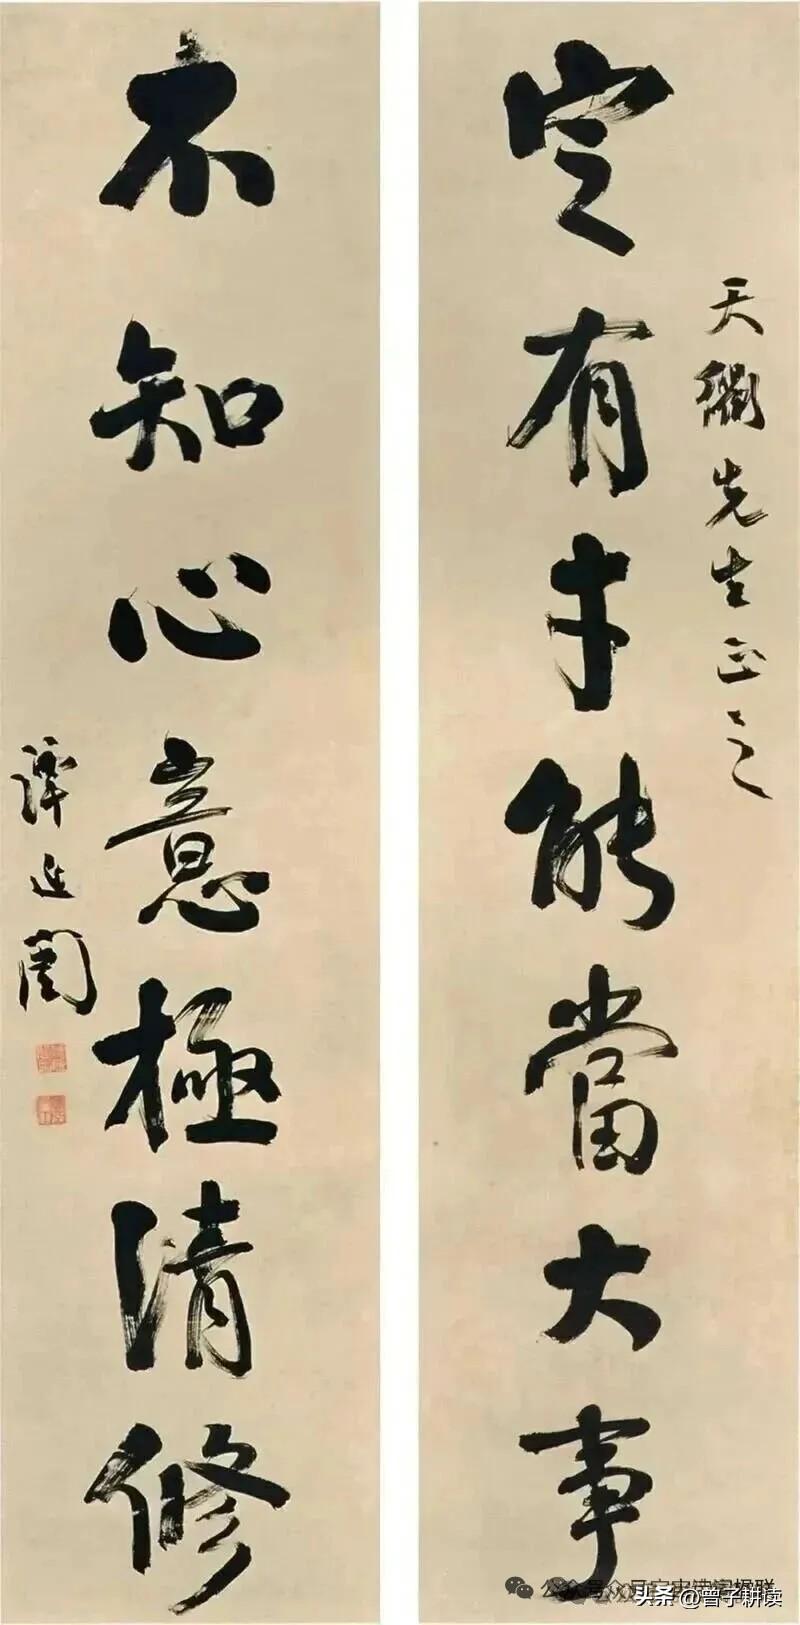 天衢先生正之
定有才能當大事
不知心意極清修
譚延闓
公众号
头条@曾子耕读